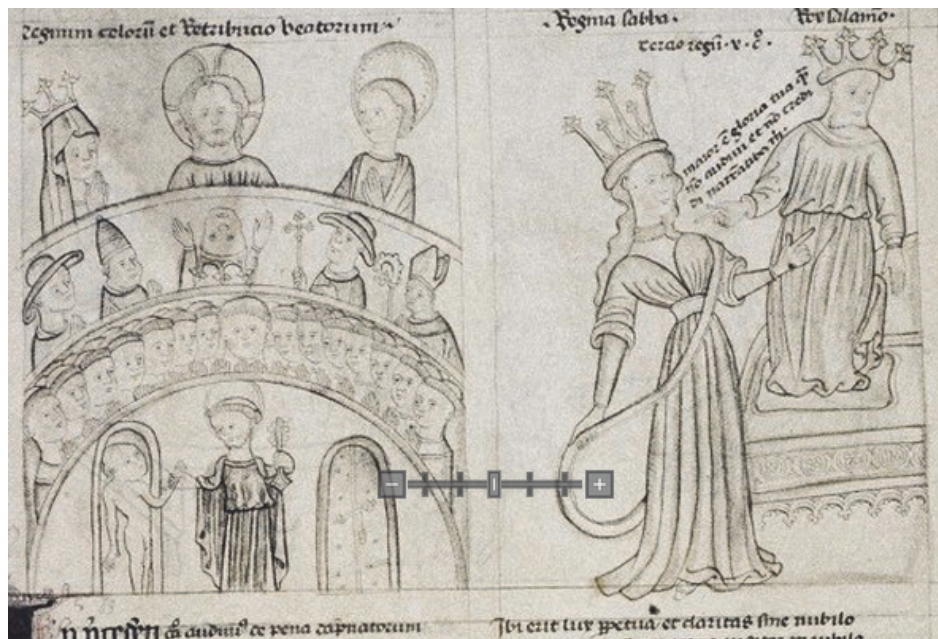 Regnum celorū et Retribucio beatorum
Regina sabba
Rex salamō
tercio regū v c°
maior ē gloria tua q̄
nō audiui et nō credi
di narrātibus m̄
audiuim̄ de pena dāpnatorum
Ibi erit lux ꝑpetua et claritas sine nubilo